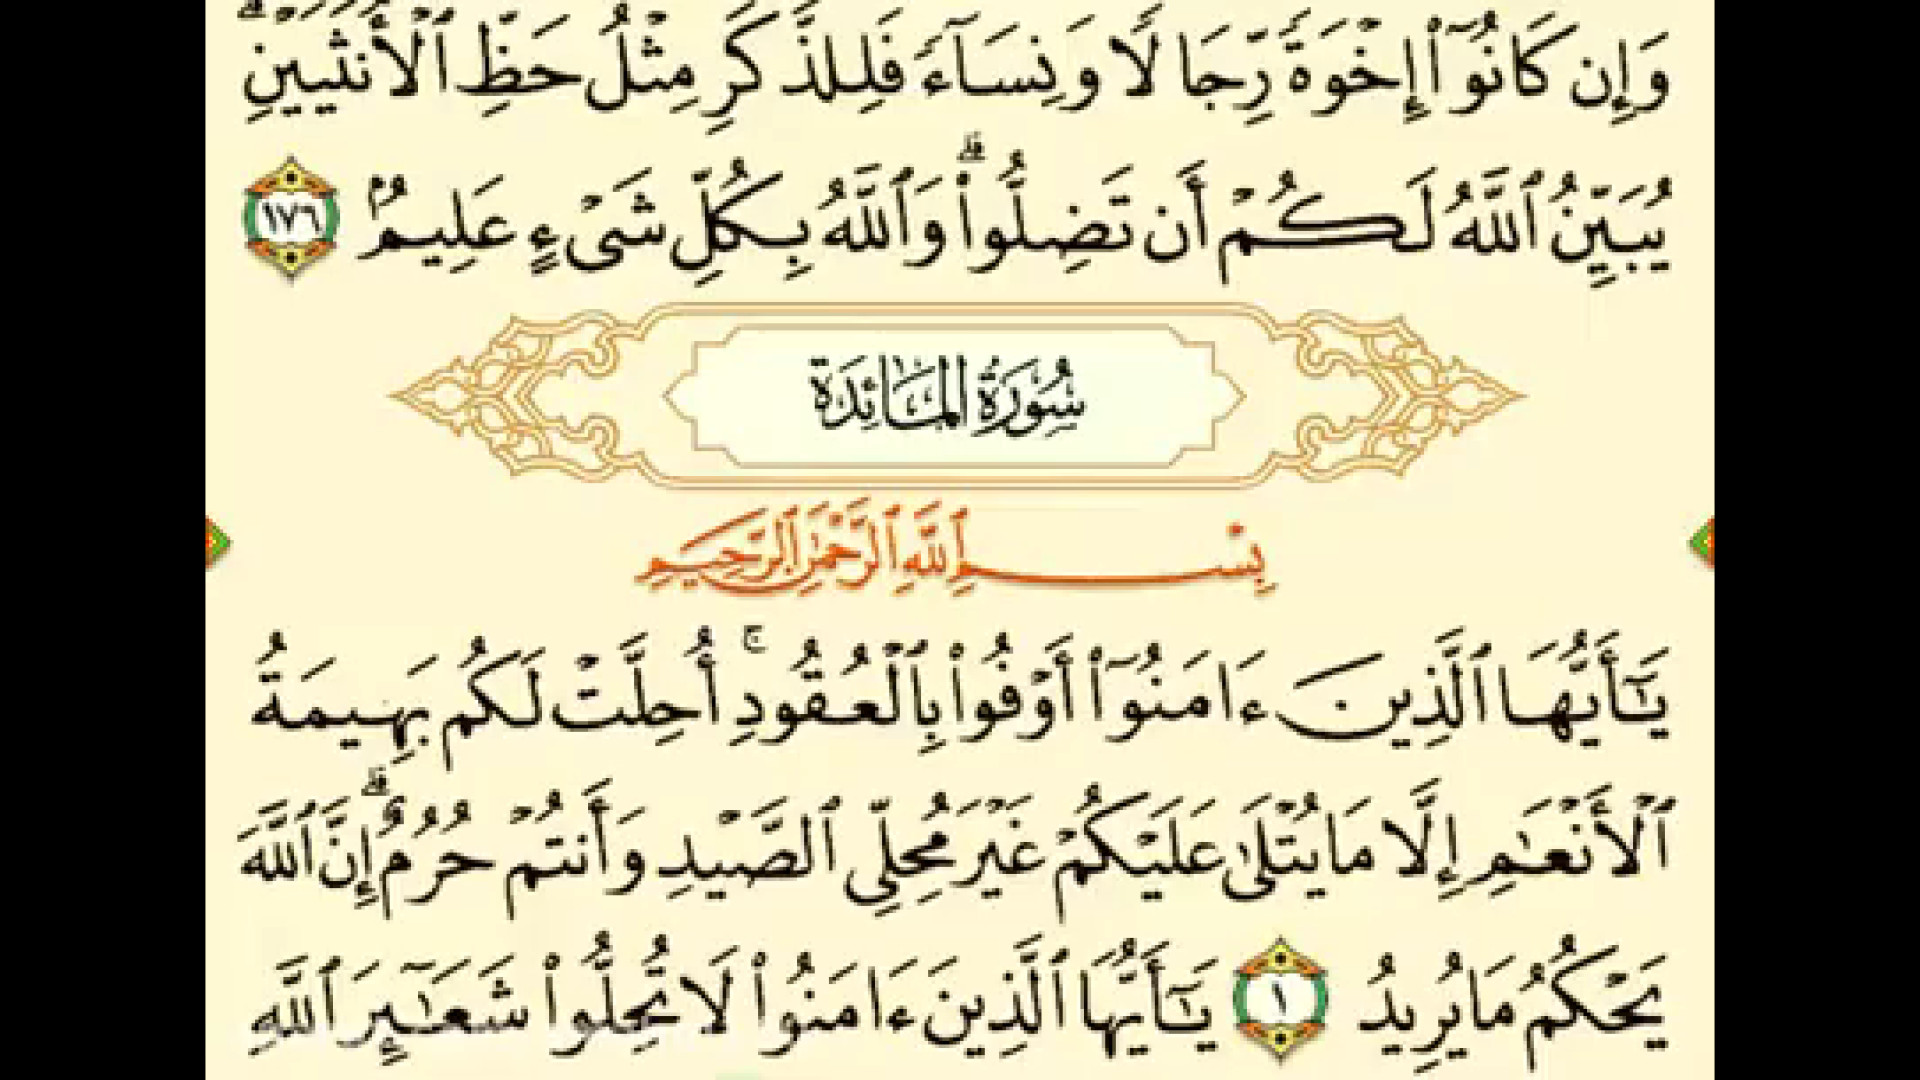 وَإِن كَانُوٓا۟ إِخْوَةً رِّجَالًا وَنِسَآءً فَلِلذَّكَرِ مِثْلُ حَظِّ ٱلْأُنثَيَيْنِ ۗ
يُبَيِّنُ ٱللَّهُ لَكُمْ أَن تَضِلُّوا۟ ۗ وَٱللَّهُ بِكُلِّ شَىْءٍ عَلِيمٌۢ ١٧٦
سُورَةُ المَائِدَة
بِسْمِ ٱللَّهِ ٱلرَّحْمَٰنِ ٱلرَّحِيمِ
يَٰٓأَيُّهَا ٱلَّذِينَ ءَامَنُوٓا۟ أَوْفُوا۟ بِٱلْعُقُودِ ۚ أُحِلَّتْ لَكُم بَهِيمَةُ
ٱلْأَنْعَٰمِ إِلَّا مَا يُتْلَىٰ عَلَيْكُمْ غَيْرَ مُحِلِّى ٱلصَّيْدِ وَأَنتُمْ حُرُمٌ ۗ إِنَّ ٱللَّهَ
يَحْكُمُ مَا يُرِيدُ ١ يَٰٓأَيُّهَا ٱلَّذِينَ ءَامَنُوا۟ لَا تُحِلُّوا۟ شَعَٰٓئِرَ ٱللَّهِ